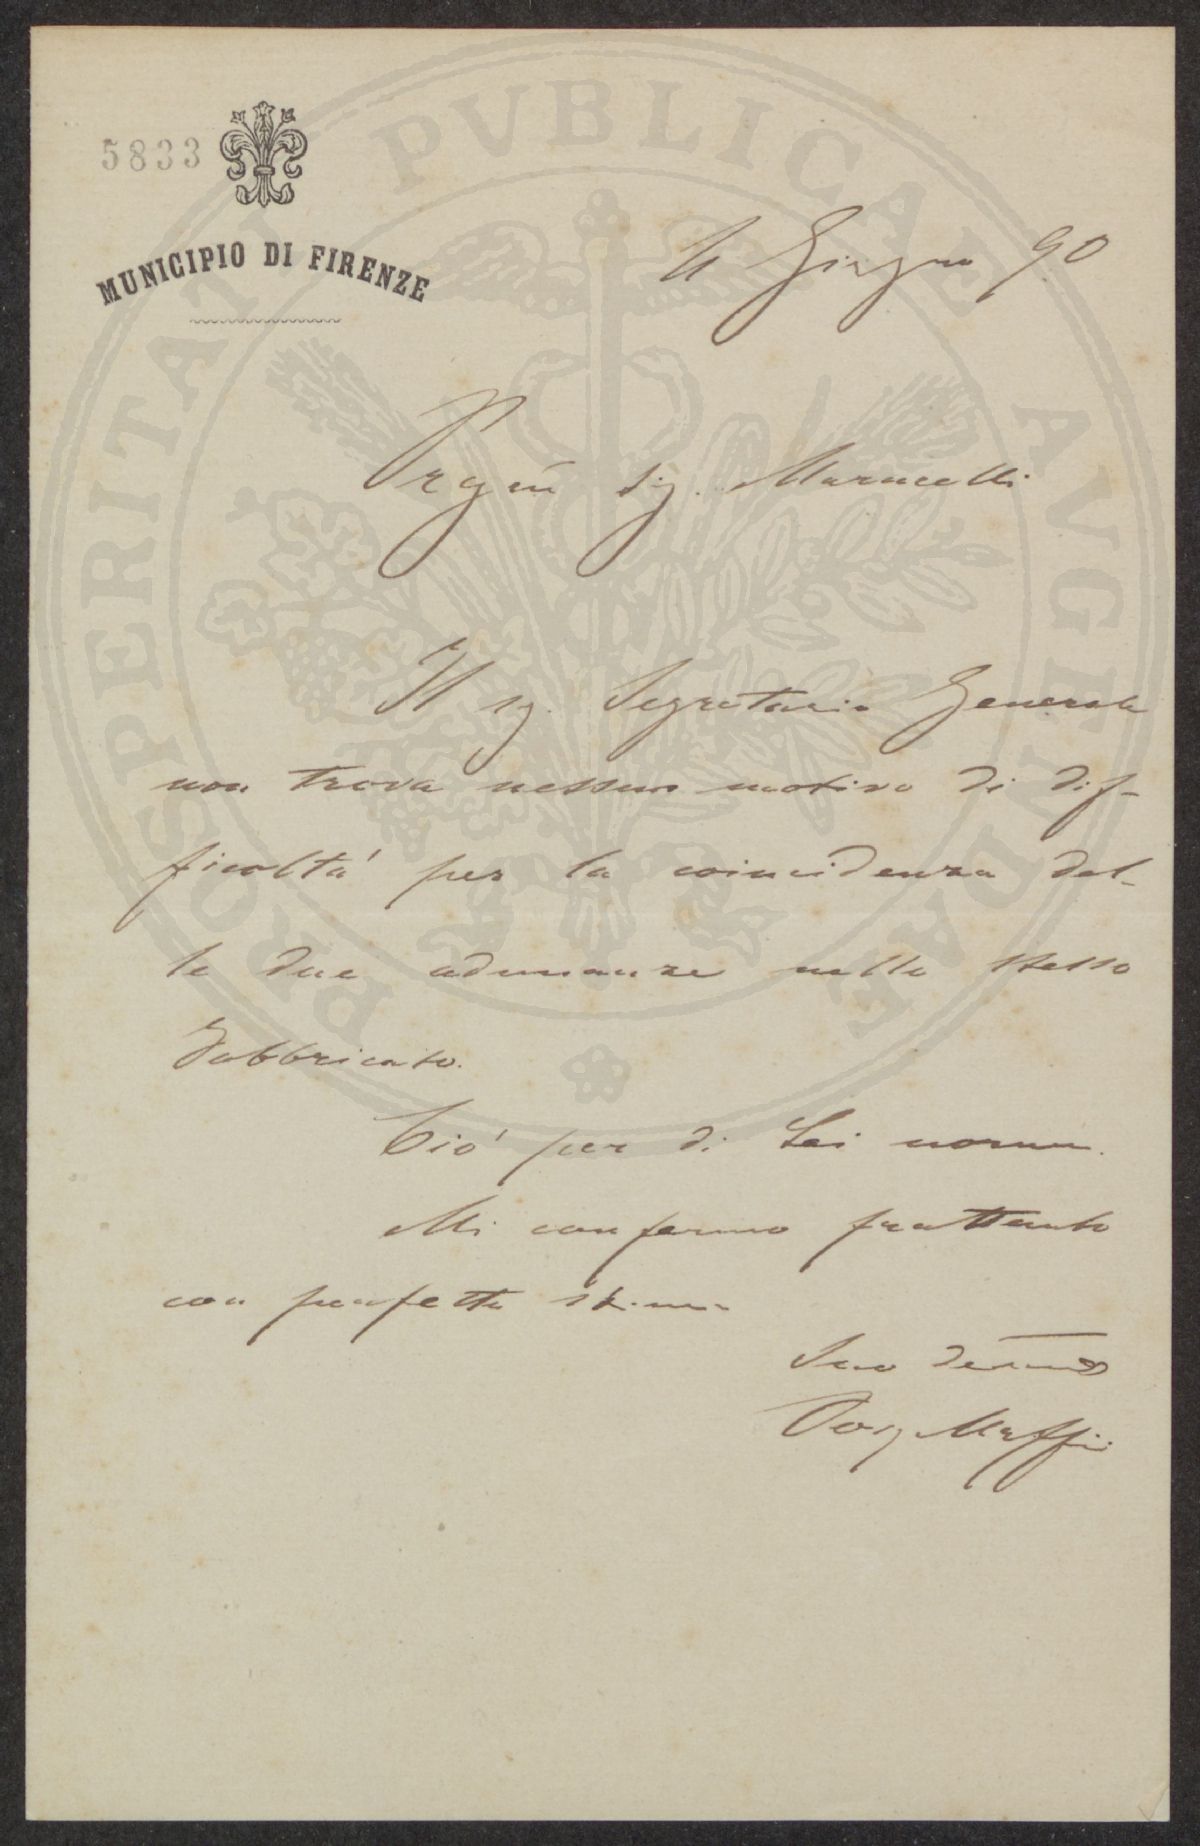 5833
MUNICIPIO DI FIRENZE
4 Giugno 90
Pregmo Sig. Marucelli
Il sig. Segretario Generale
non trova nessun motivo di dif-
ficoltà per la coincidenza del-
le due adunanze nello stesso
Fabbricato.
Ciò per di Lei norma.
Mi confermo frattanto
con perfetta stima
Suo
Maffii
PROSPERITATI PVBLICAE AVGENDAE